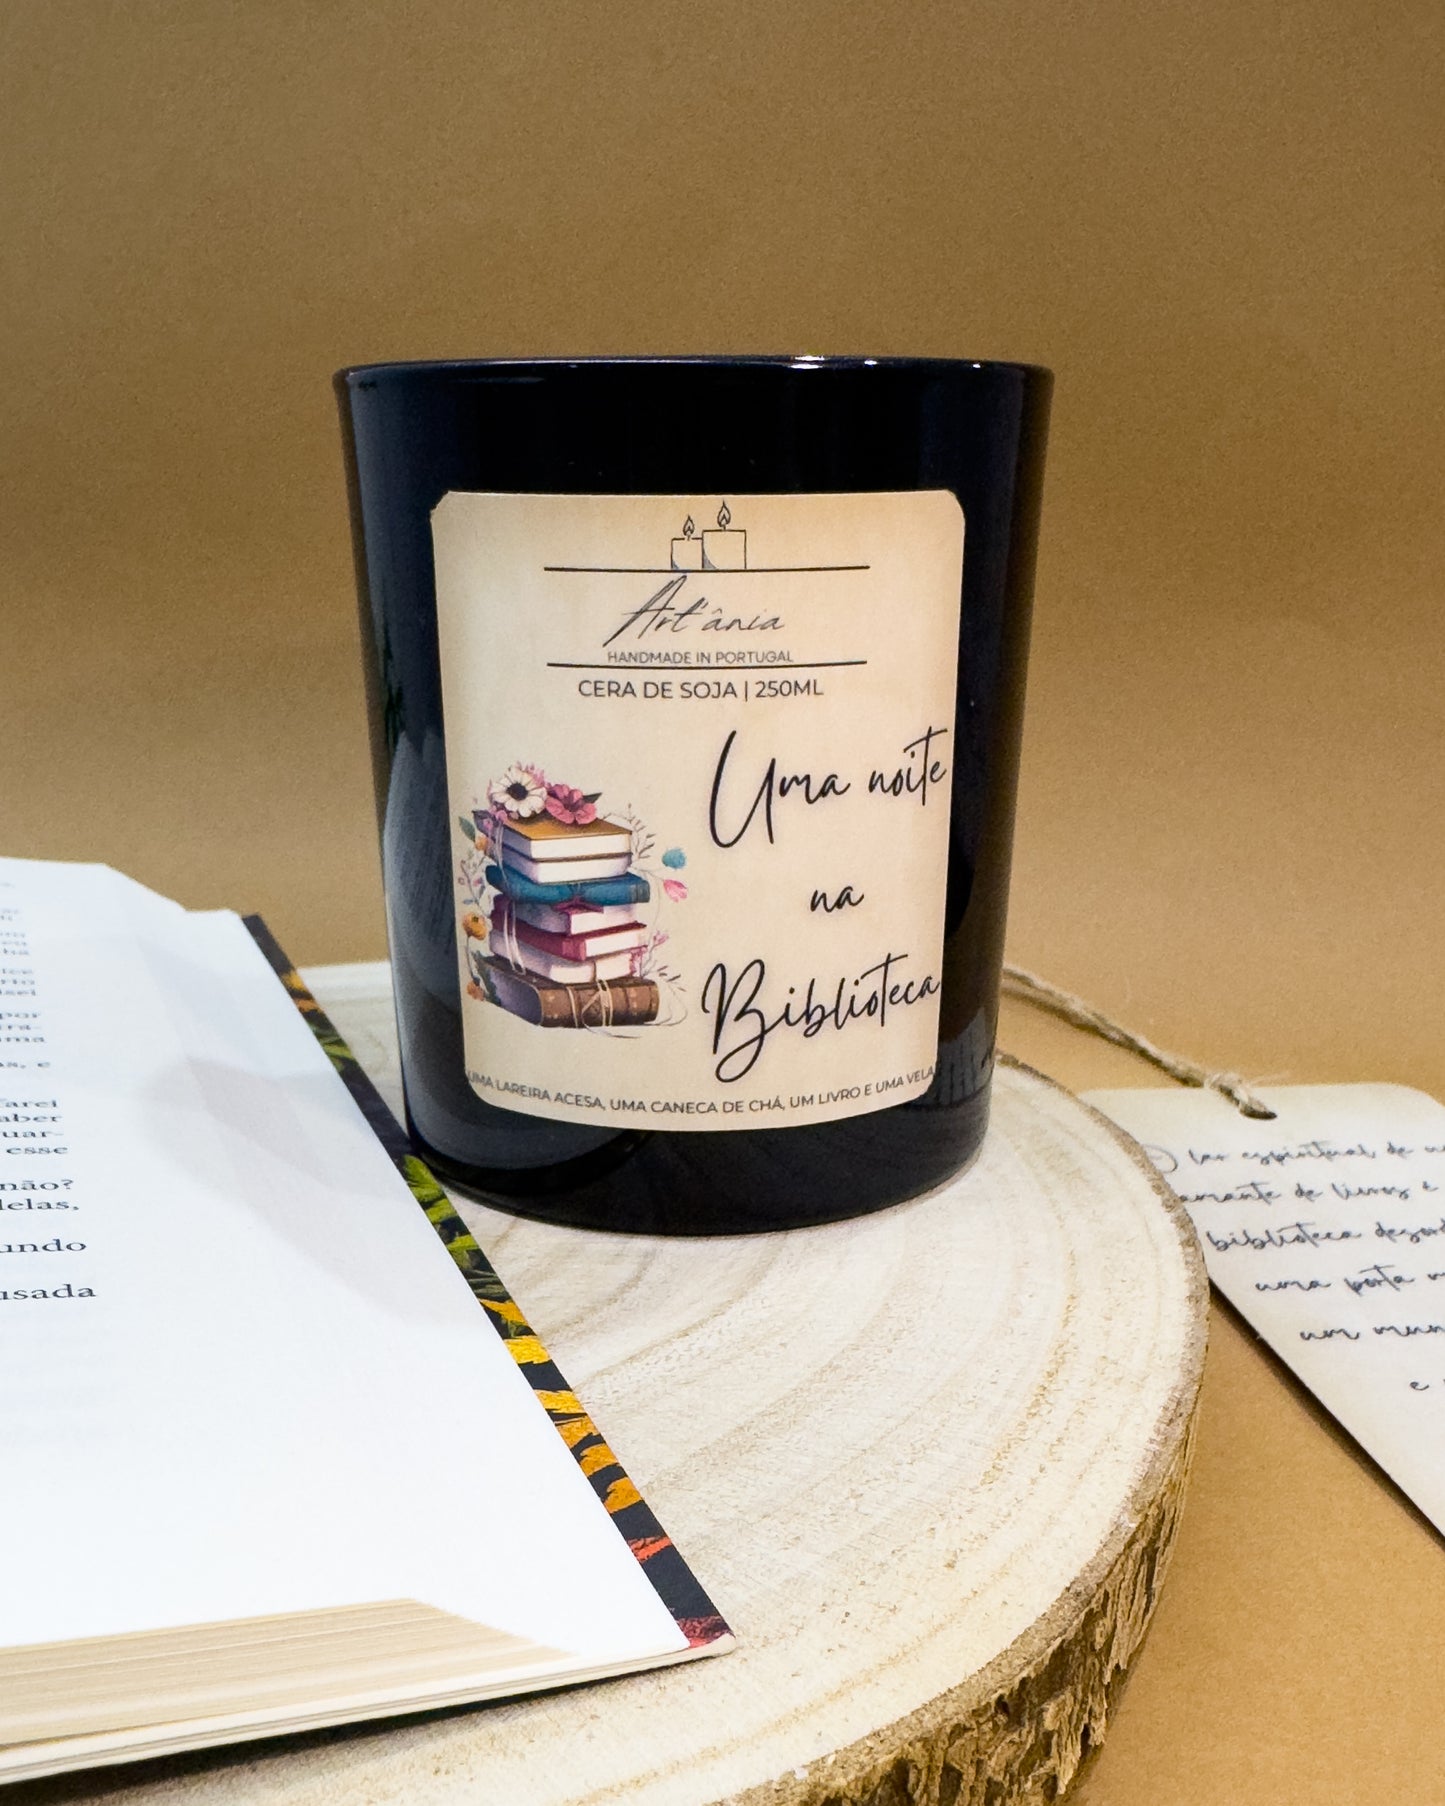 Art'ânia
HANDMADE IN PORTUGAL
CERA DE SOJA | 250ML
Uma noite
na
Biblioteca
UMA LAREIRA ACESA, UMA CANECA DE CHÁ, UM LIVRO E UMA VELA
por
uma
as, e
farei
aber
uar-
esse
não?
delas,
undo
usada
O lar espiritual de
amante de livros é
biblioteca
uma porta
um
e